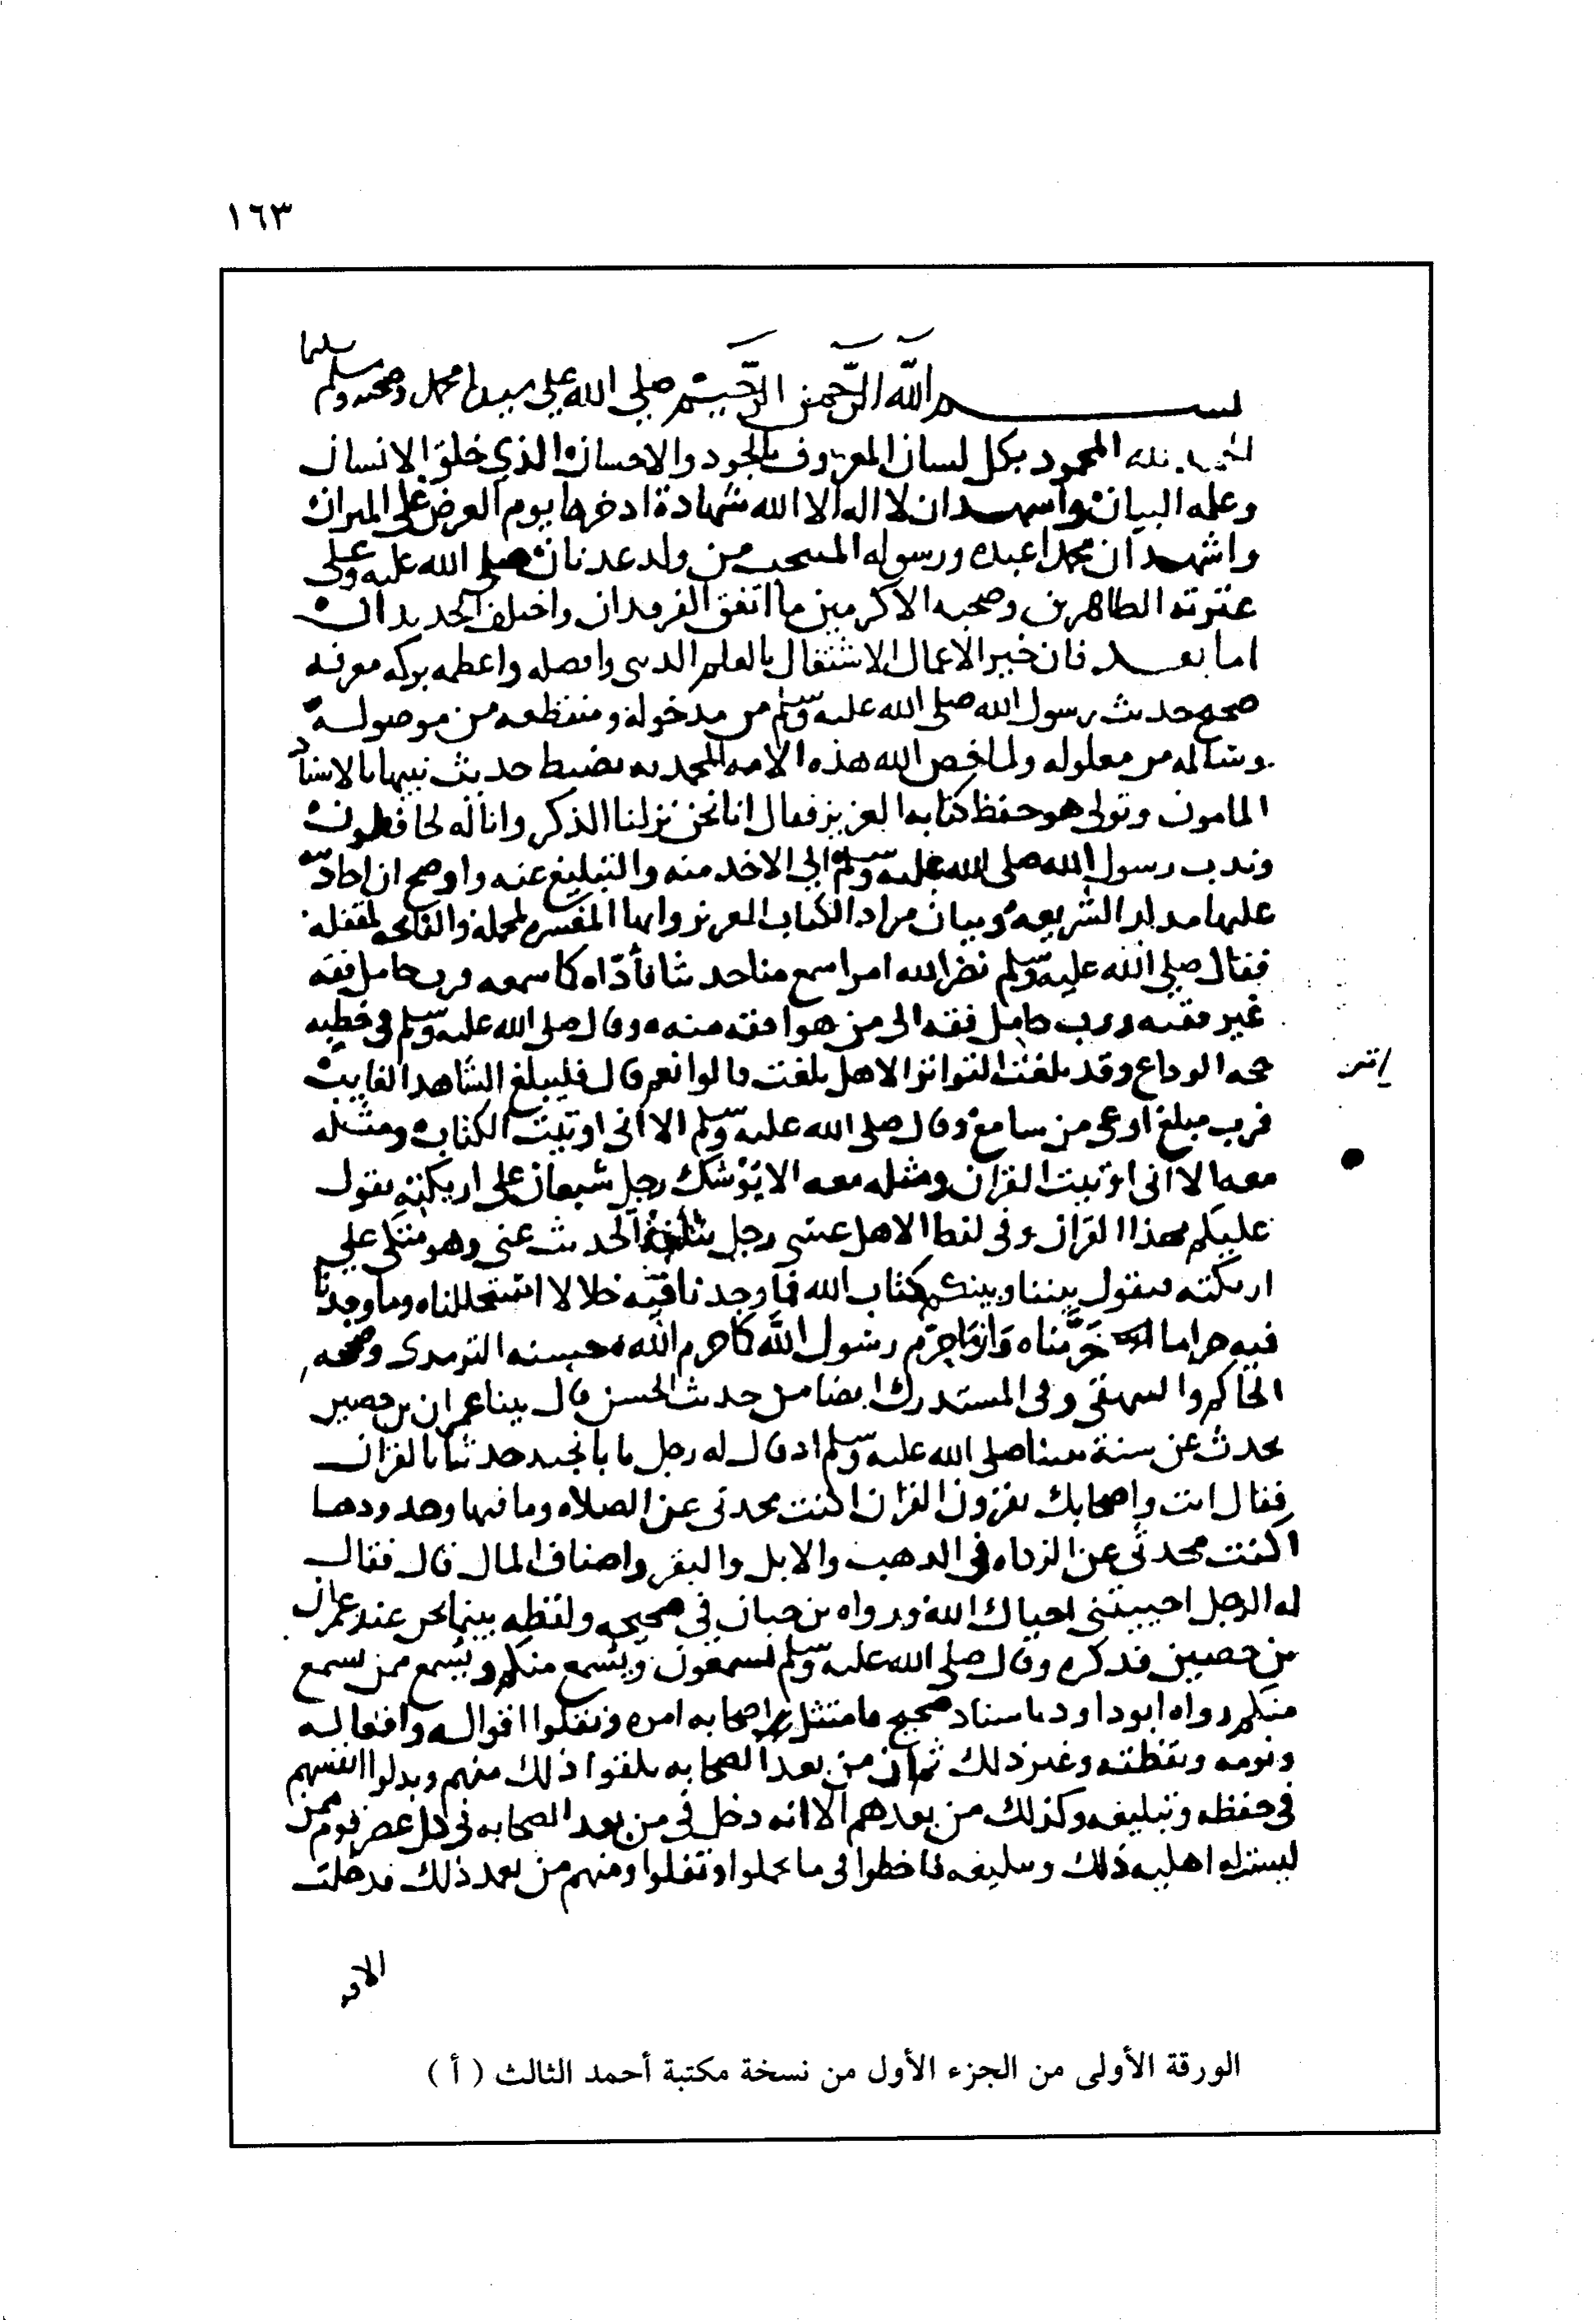 ١٦٣
بسم الله الرحمن الرحيم صلى الله على سيدنا محمد وصحبه وسلم تسليما
الحمد لله المحمود بكل لسان المعروف بالجود والاحسان الذي خلق الانسان
وعلمه البيان واشهد ان لا اله الا الله شهادة ادخرها يوم العرض على الميزان
واشهد ان محمدا عبده ورسوله المنتخب من ولد عدنان صلى الله عليه وعلى
عترته الطاهرين وصحبه الاكرمين ما اتفق الفرقدان واختلف الجديدان
اما بعد فان خير الاعمال الاشتغال بالعلم الديني وافضله واعظمه بركه معرفة
صحيح حديث رسول الله صلى الله عليه وسلم من مدخوله ومنقطعه من موصوله
وسالمه من معلوله ولما خص الله هذه الامه المحمديه بضبط حديث نبيها بالاسناد
المامون وتولى هو حفظ كتابه العزيز فقال انا نحن نزلنا الذكر وانا له لحافظون
وندب رسول الله صلى الله عليه وسلم الى الاخذ منه والتبليغ عنه واوضح ان احاديثه
عليها مدار الشريعه وبيان مراد الكتاب العزيز وانها المفسره لمجمله والفاتحه لمقفله
فقال صلى الله عليه وسلم نضر الله امرا سمع منا حديثا فأدّاه كما سمعه فرب حامل فقه
غير فقيه ورب حامل فقه الى من هو افقه منه وقال صلى الله عليه وسلم في خطبه
حجه الوداع وقد بلغت التواتر الا هل بلغت قالوا نعم قال فليبلغ الشاهد الغايب
فرب مبلغ اوعى من سامع وقال صلى الله عليه وسلم الا اني اوتيت الكتاب ومثله
معه الا اني اوتيت القران ومثله معه الا يوشك رجل شبعان على اريكته يقول
عليكم بهذا القران وفي لفظ الا هل عسى رجل يبلغه الحديث عني وهو متكي على
اريكته فيقول بيننا وبينكم كتاب الله فما وجدنا فيه حلالا استحللناه وما وجدنا
فيه حراما حرّمناه وان ما حرّم رسول الله كما حرم الله حسنه الترمذي وصححه
الحاكم والبيهقي وفي المستدرك ايضا من حديث الحسن قال بينا عمران بن حصين
يحدث عن سنة نبينا صلى الله عليه وسلم اذ قال له رجل يا با نجيد حدثنا بالقران
فقال انت واصحابك يقرؤون القران اكنت محدثي عن الصلاه وما فيها وحدودها
اكنت محدثي عن الزكاه في الذهب والابل والبقر واصناف المال قال فقال
له الرجل احييتني احياك الله ورواه بن حبان في صحيحه ولفظه بينما نحن عند عمران
بن حصين فذكره وقال صلى الله عليه وسلم تسمعون ويُسمع منكم ويُسمع ممن يسمع
منكم رواه ابو داود باسناد صحيح فامتثل اصحابه امره ونقلوا اقواله وافعاله
ونومه ويقظته وغير ذلك ثم ان من بعد الصحابه تلقوا ذلك منهم وبذلوا انفسهم
في حفظه وتبليغه وكذلك من بعدهم الا انه دخل في من بعد الصحابه في كل عصر قوم ممن
ليست له اهليه ذلك وتبليغه فاخطوا في ما تحملوا ونقلوا ومنهم من تعمد ذلك فدخلت
الورقة الأولى من الجزء الأول من نسخة مكتبة أحمد الثالث ( أ )